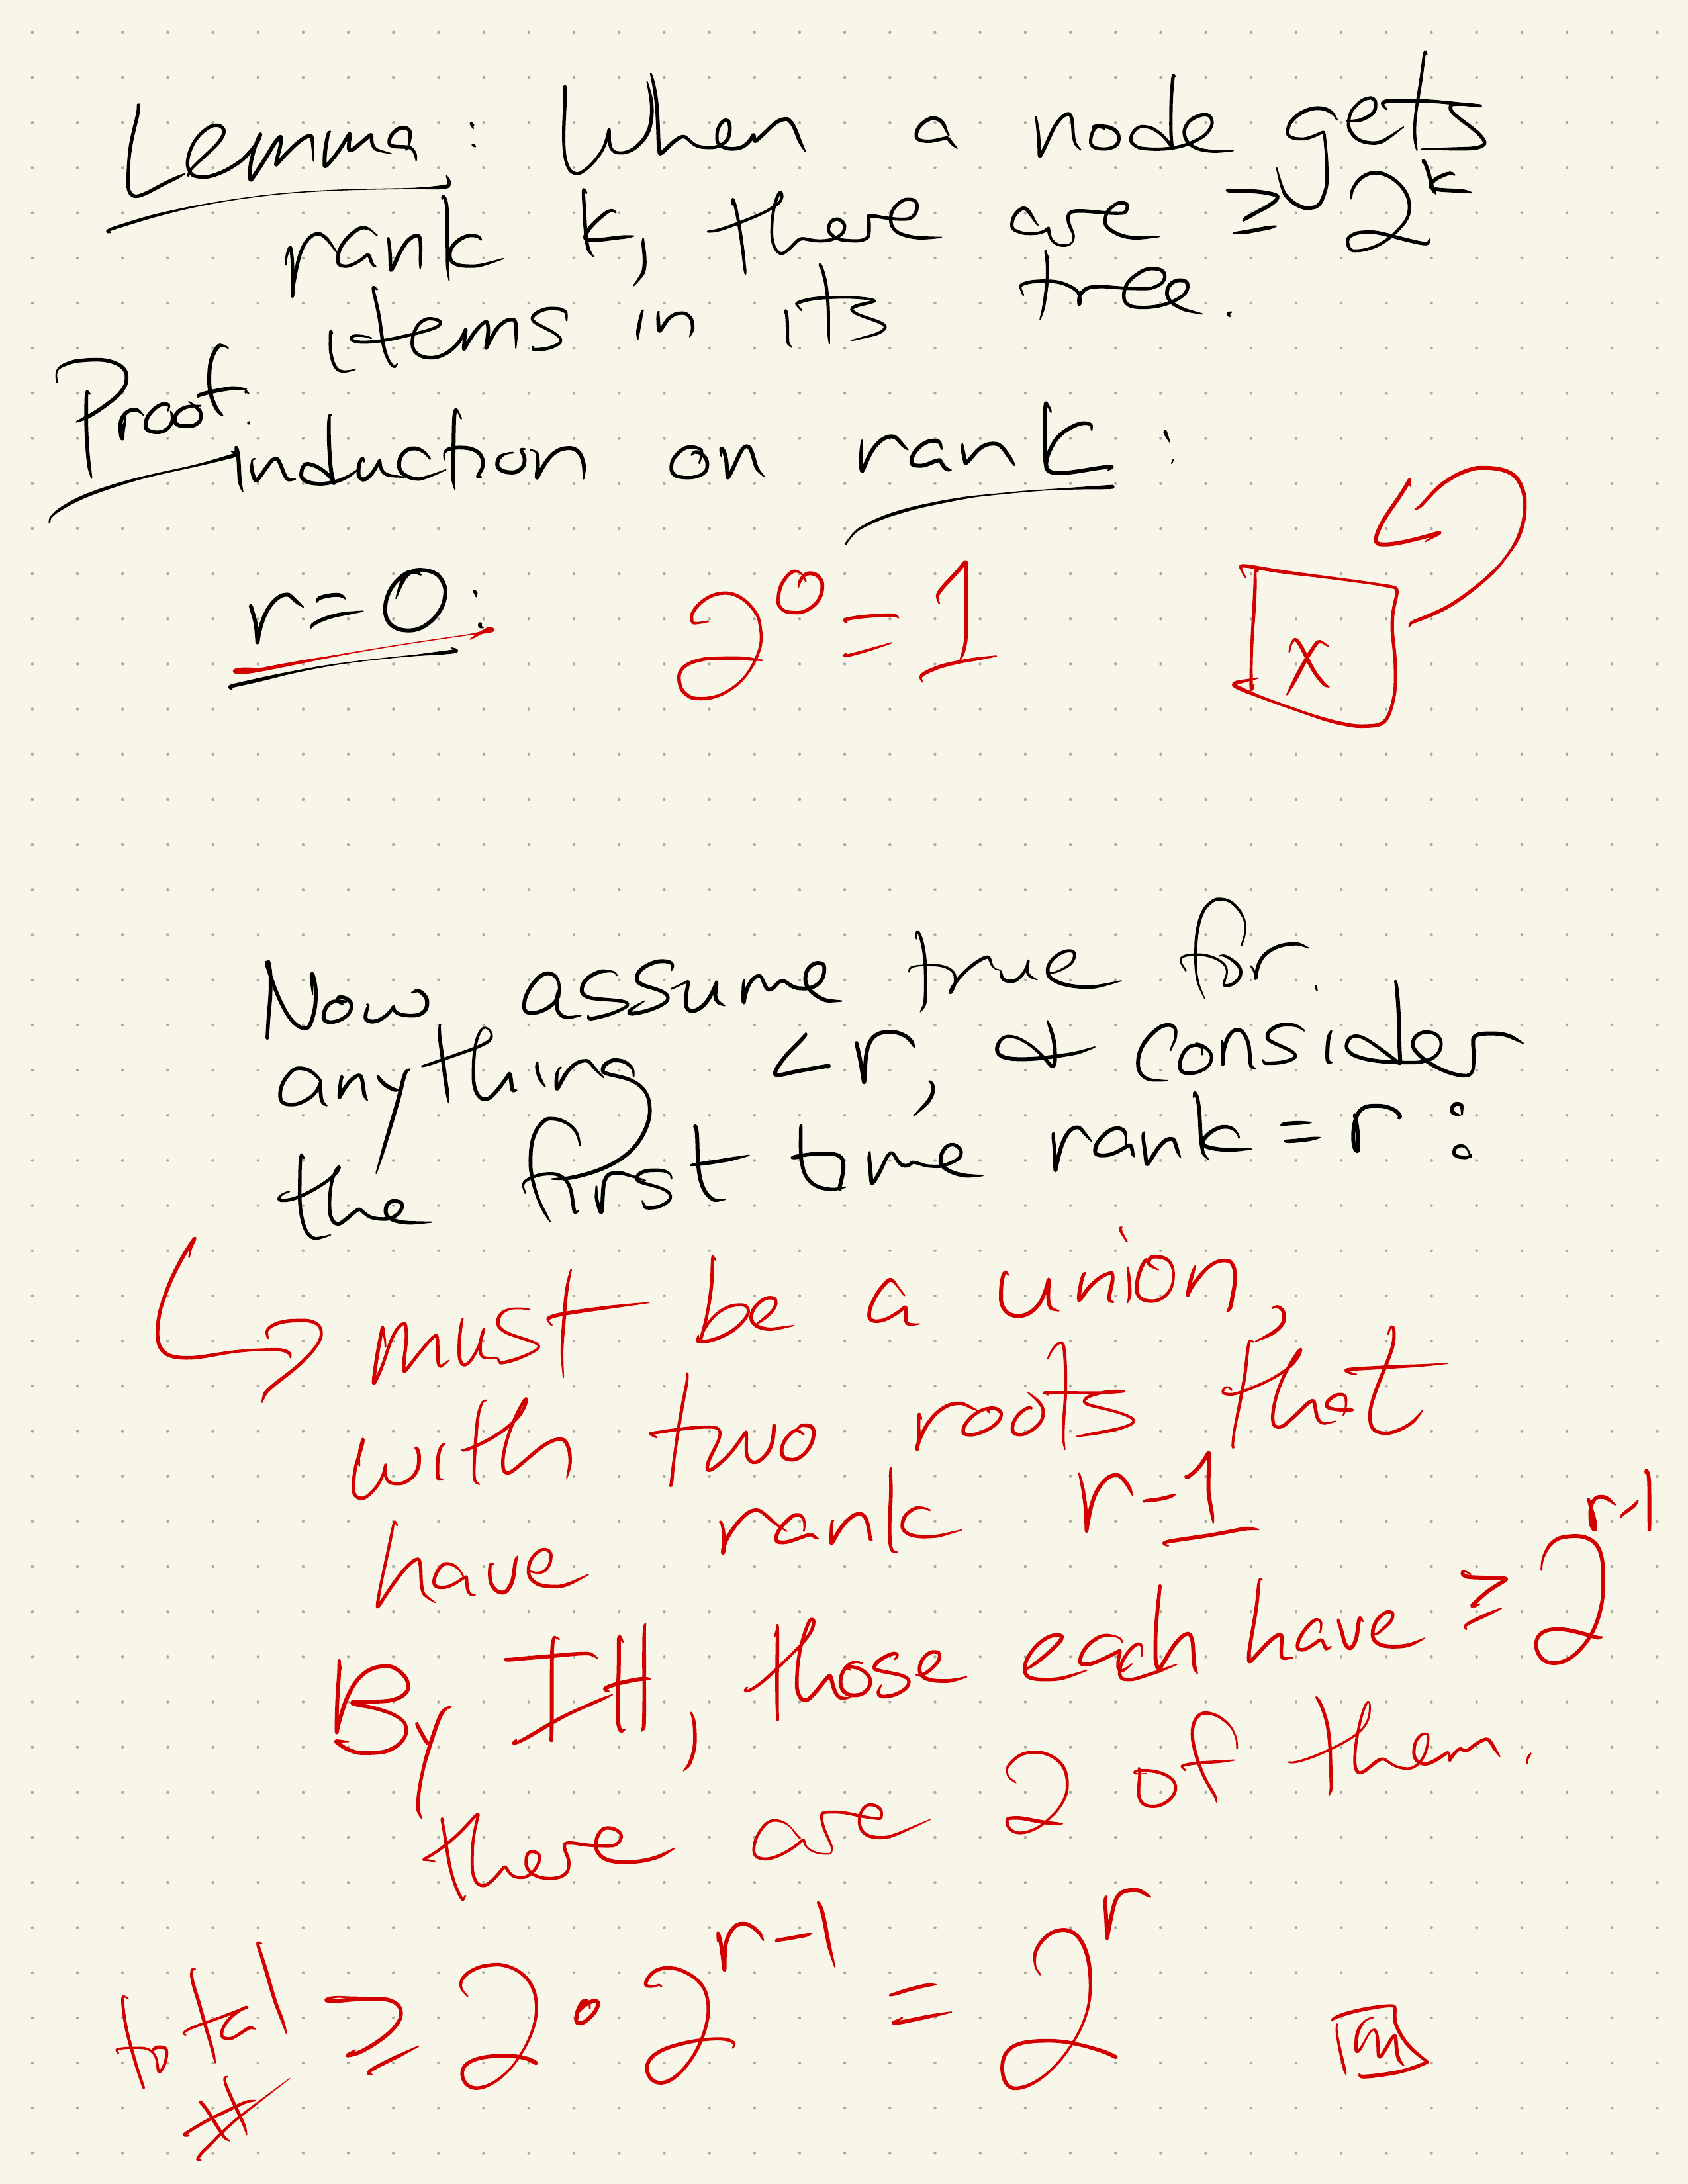 Lemma: When a node gets
rank k, there are ≥ 2^k
items in its tree.
Proof:
induction on rank:
r=0: 2^0=1 x
Now assume true for
anything <r, & consider
the first time rank=r:
↳ must be a union,
with two roots that
have rank r-1
By IH, those each have ≥ 2^{r-1}
there are 2 of them.
total # ≥ 2·2^{r-1} = 2^r